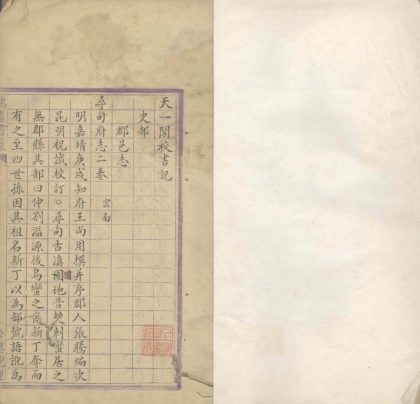 天一閣校書記
史部
郡邑志
尋甸府志二卷 雲南
明嘉靖庚戌知府王尚用撰并序郡人張騰編次
昆明祝誠校訂。尋甸古滇國地昔僰剌蠻居之
無郡縣其部曰仲劄溢源後烏蠻之裔新丁奪而
有之至四世孫因其祖名新丁以為部號語訛為